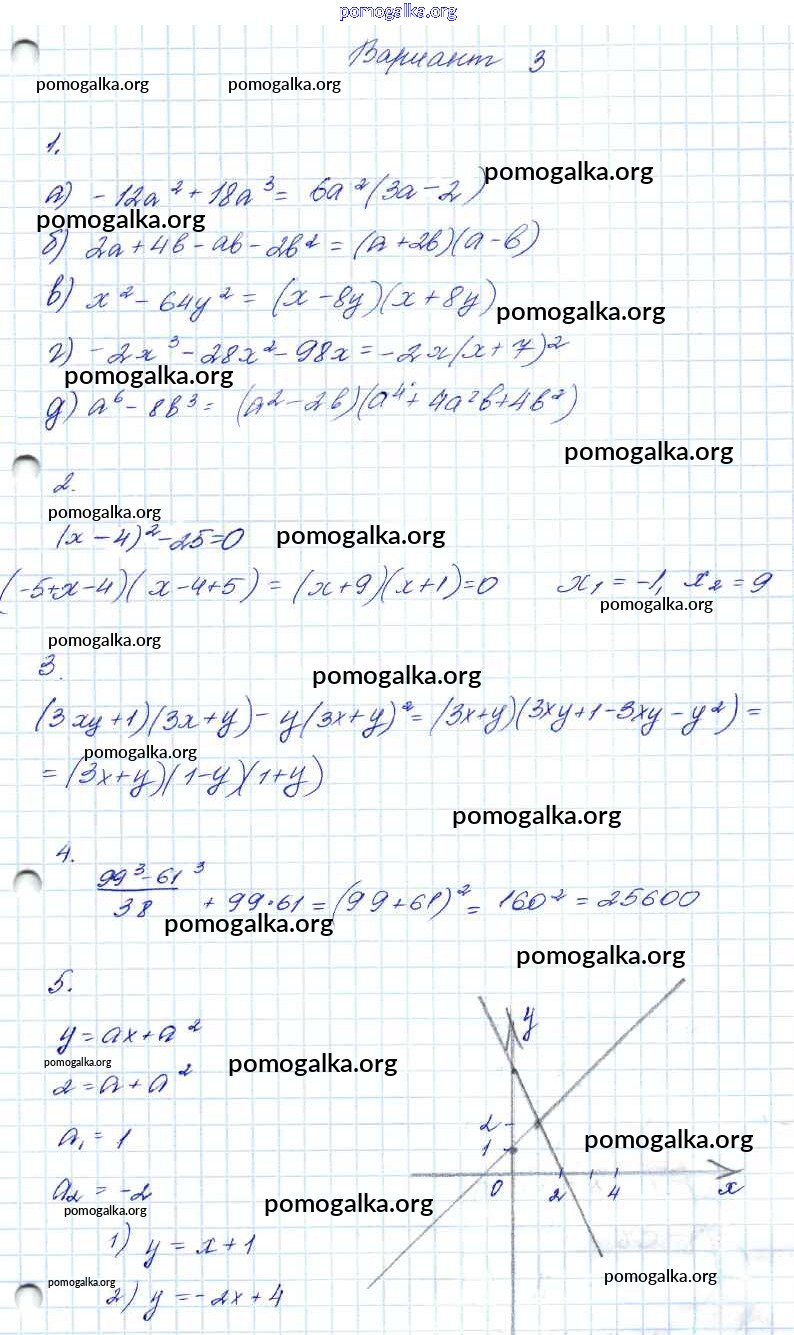 pomogalka.org
Вариант 3
pomogalka.org pomogalka.org
1.
pomogalka.org
а) -12a² + 18a³ = 6a²(3a - 2)
pomogalka.org
б) 2a + 4b - ab - 2b² = (a + 2b)(a - b)
в) x² - 64y² = (x - 8y)(x + 8y)
pomogalka.org
г) -2x³ - 28x² - 98x = -2x(x + 7)²
pomogalka.org
д) a⁶ - 8b³ = (a² - 2b)(a⁴ + 4a²b + 4b²)
pomogalka.org
2.
pomogalka.org
(x - 4)² - 25 = 0
pomogalka.org
(-5 + x - 4)(x - 4 + 5) = (x + 9)(x + 1) = 0 x₁ = -1, x₂ = 9
pomogalka.org
pomogalka.org
3.
pomogalka.org
(3xy + 1)(3x + y) - y(3x + y)² = (3x + y)(3xy + 1 - 3xy - y²) =
pomogalka.org
= (3x + y)(1 - y)(1 + y)
pomogalka.org
4.
99³ - 61³
38
+ 99·61 = (99 + 61)² = 160² = 25600
pomogalka.org
pomogalka.org
5.
y
y = ax + a²
pomogalka.org
pomogalka.org
2 = a + a²
2
1
pomogalka.org
a₁ = 1
0 2 4 x
a₂ = -2
pomogalka.org
pomogalka.org
1) y = x + 1
pomogalka.org
pomogalka.org
2) y = -2x + 4